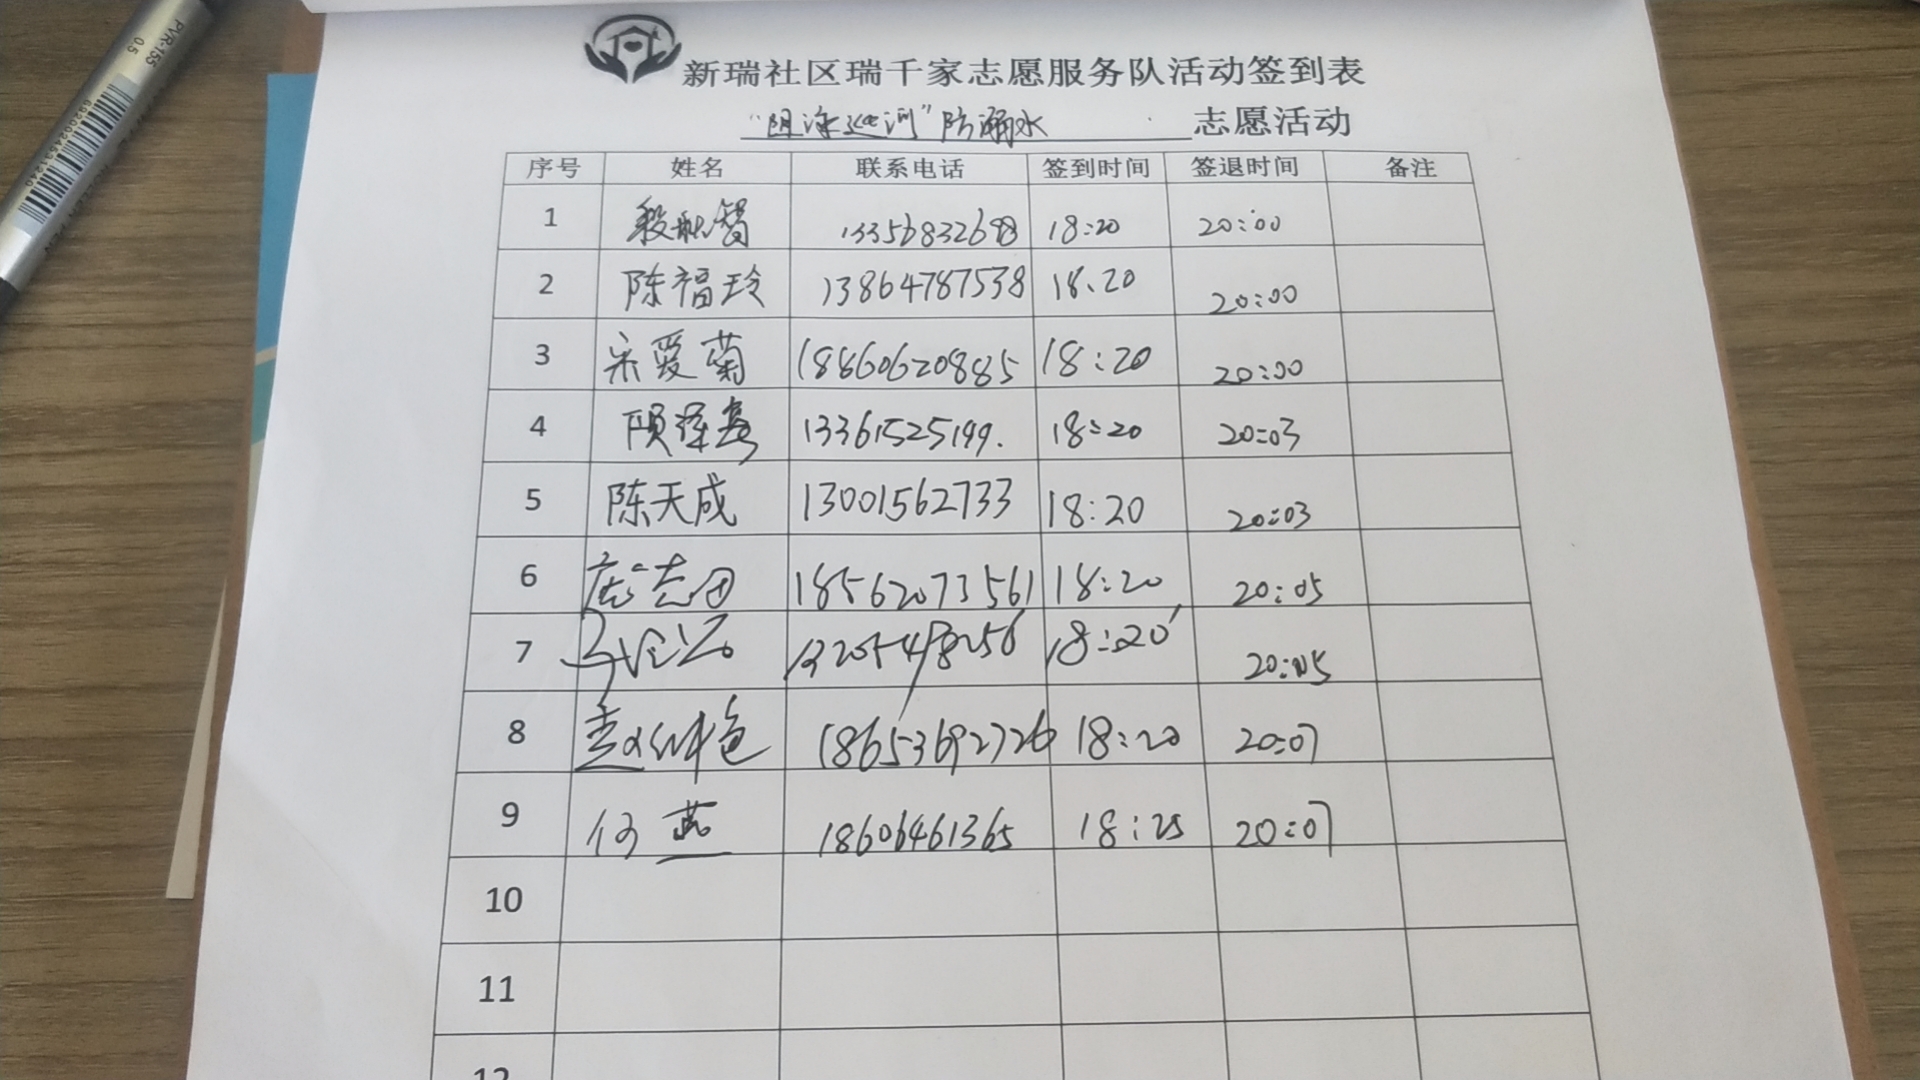 PVR-155
0.5
新瑞社区瑞千家志愿服务队活动签到表
河"防溺水 志愿活动
序号 姓名 联系电话 签到时间 签退时间 备注
1 18:20 20:00
2 陈福玲 13864787538 18:20 20:00
3 宋爱菊 18860620885 18:20 20:00
4 13361525199. 18:20 20:03
5 陈天成 13001562733 18:20 20:03
6 18562073561 18:20 20:05
7 18:20 20:05
8 18653692726 18:20 20:07
9 何燕 18606461365 18:25 20:07
10
11
12